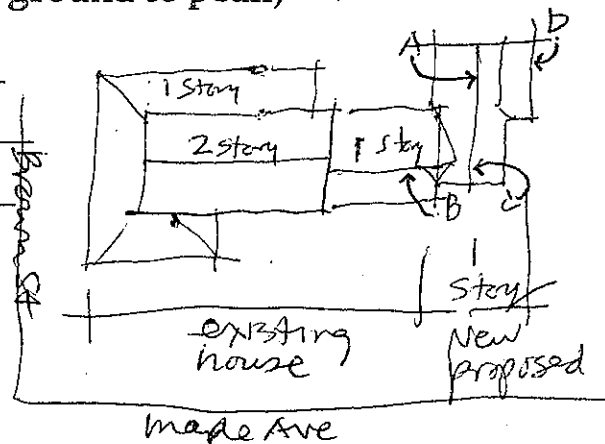 ground to peak)
A
D
1 Story
2 Story
1 Story
B
C
Brown St
1
Story
existing
house
New
proposed
Maple Ave